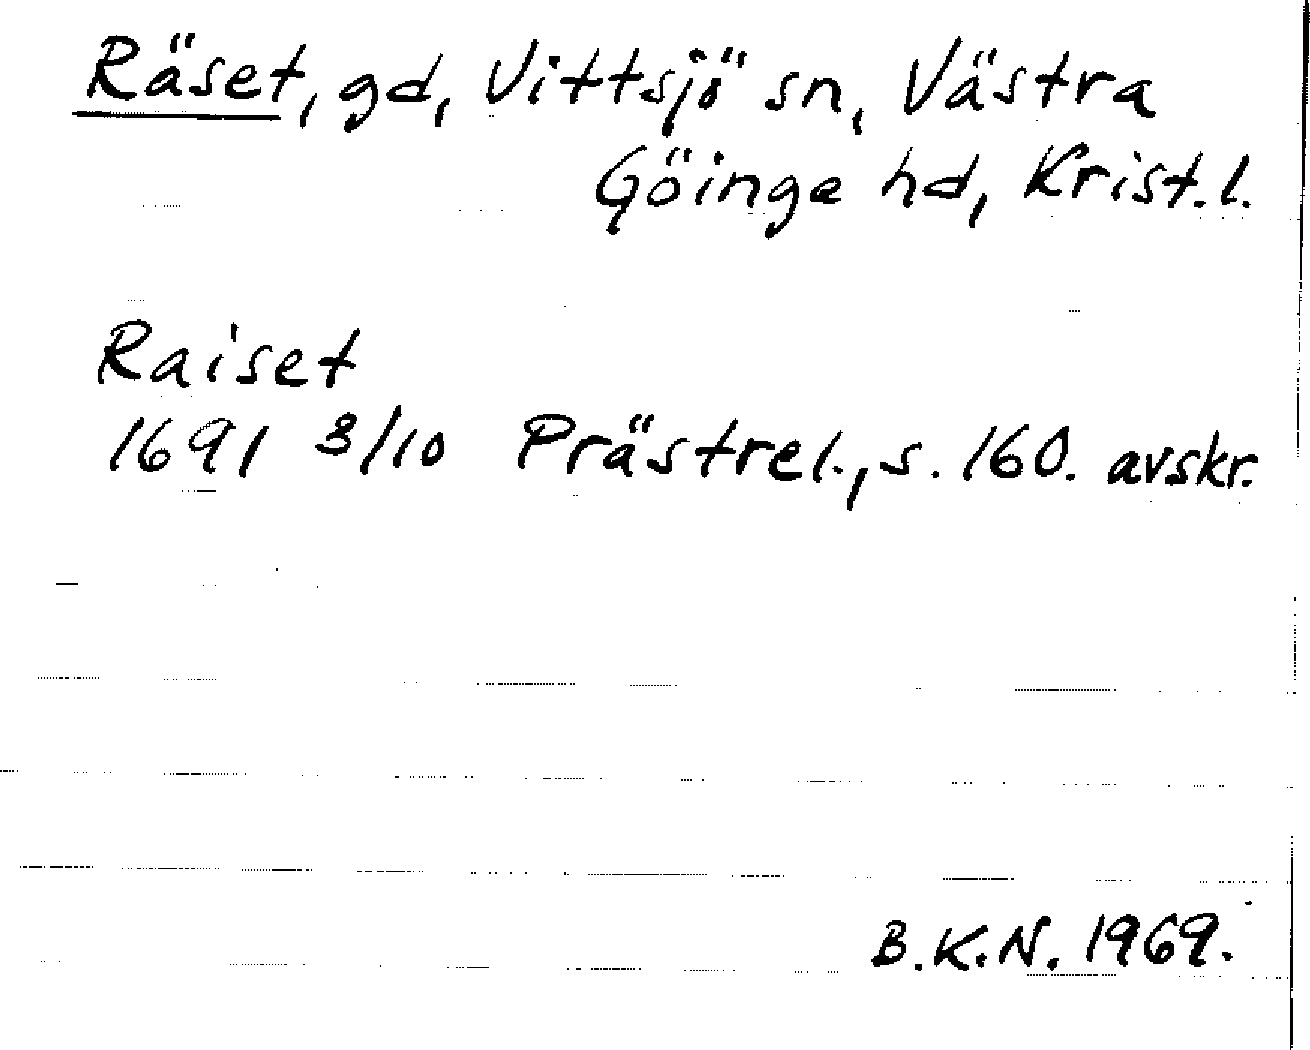 Räset, gd, Vittsjö sn, Västra
Göinge hd, Krist.l.
Raiset
1691 3/10 Prästrel., s. 160. avskr.
B.K.N. 1969.